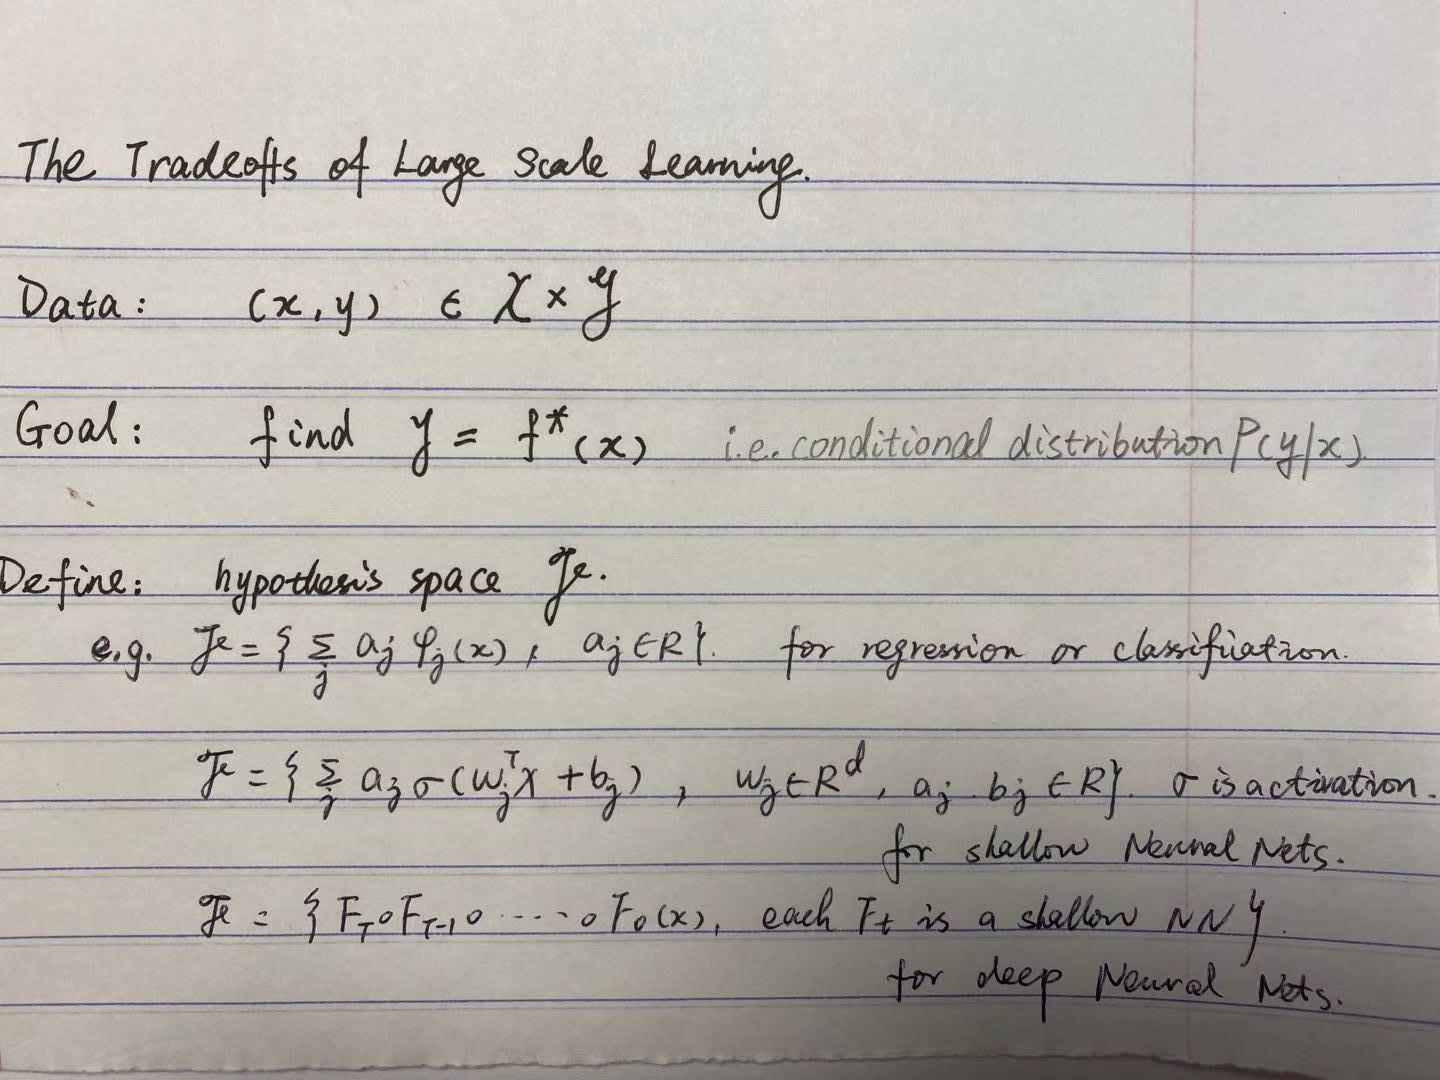 The Tradeoffs of Large Scale Learning.
Data: (x, y) ∈ 𝒳 × 𝒴
Goal: find y = f*(x) i.e. conditional distribution P(y|x).
Define: hypothesis space ℋ.
e.g. ℋ = { Σ_j a_j φ_j(x), a_j ∈ R }. for regression or classifiation.
ℋ = { Σ_j a_j σ(w_j^T x + b_j), w_j ∈ R^d, a_j. b_j ∈ R }. σ is activation.
for shallow Neural Nets.
ℋ = { F_T ∘ F_{T-1} ∘ ···· ∘ F_0(x), each F_t is a shallow NN }.
for deep Neural Nets.